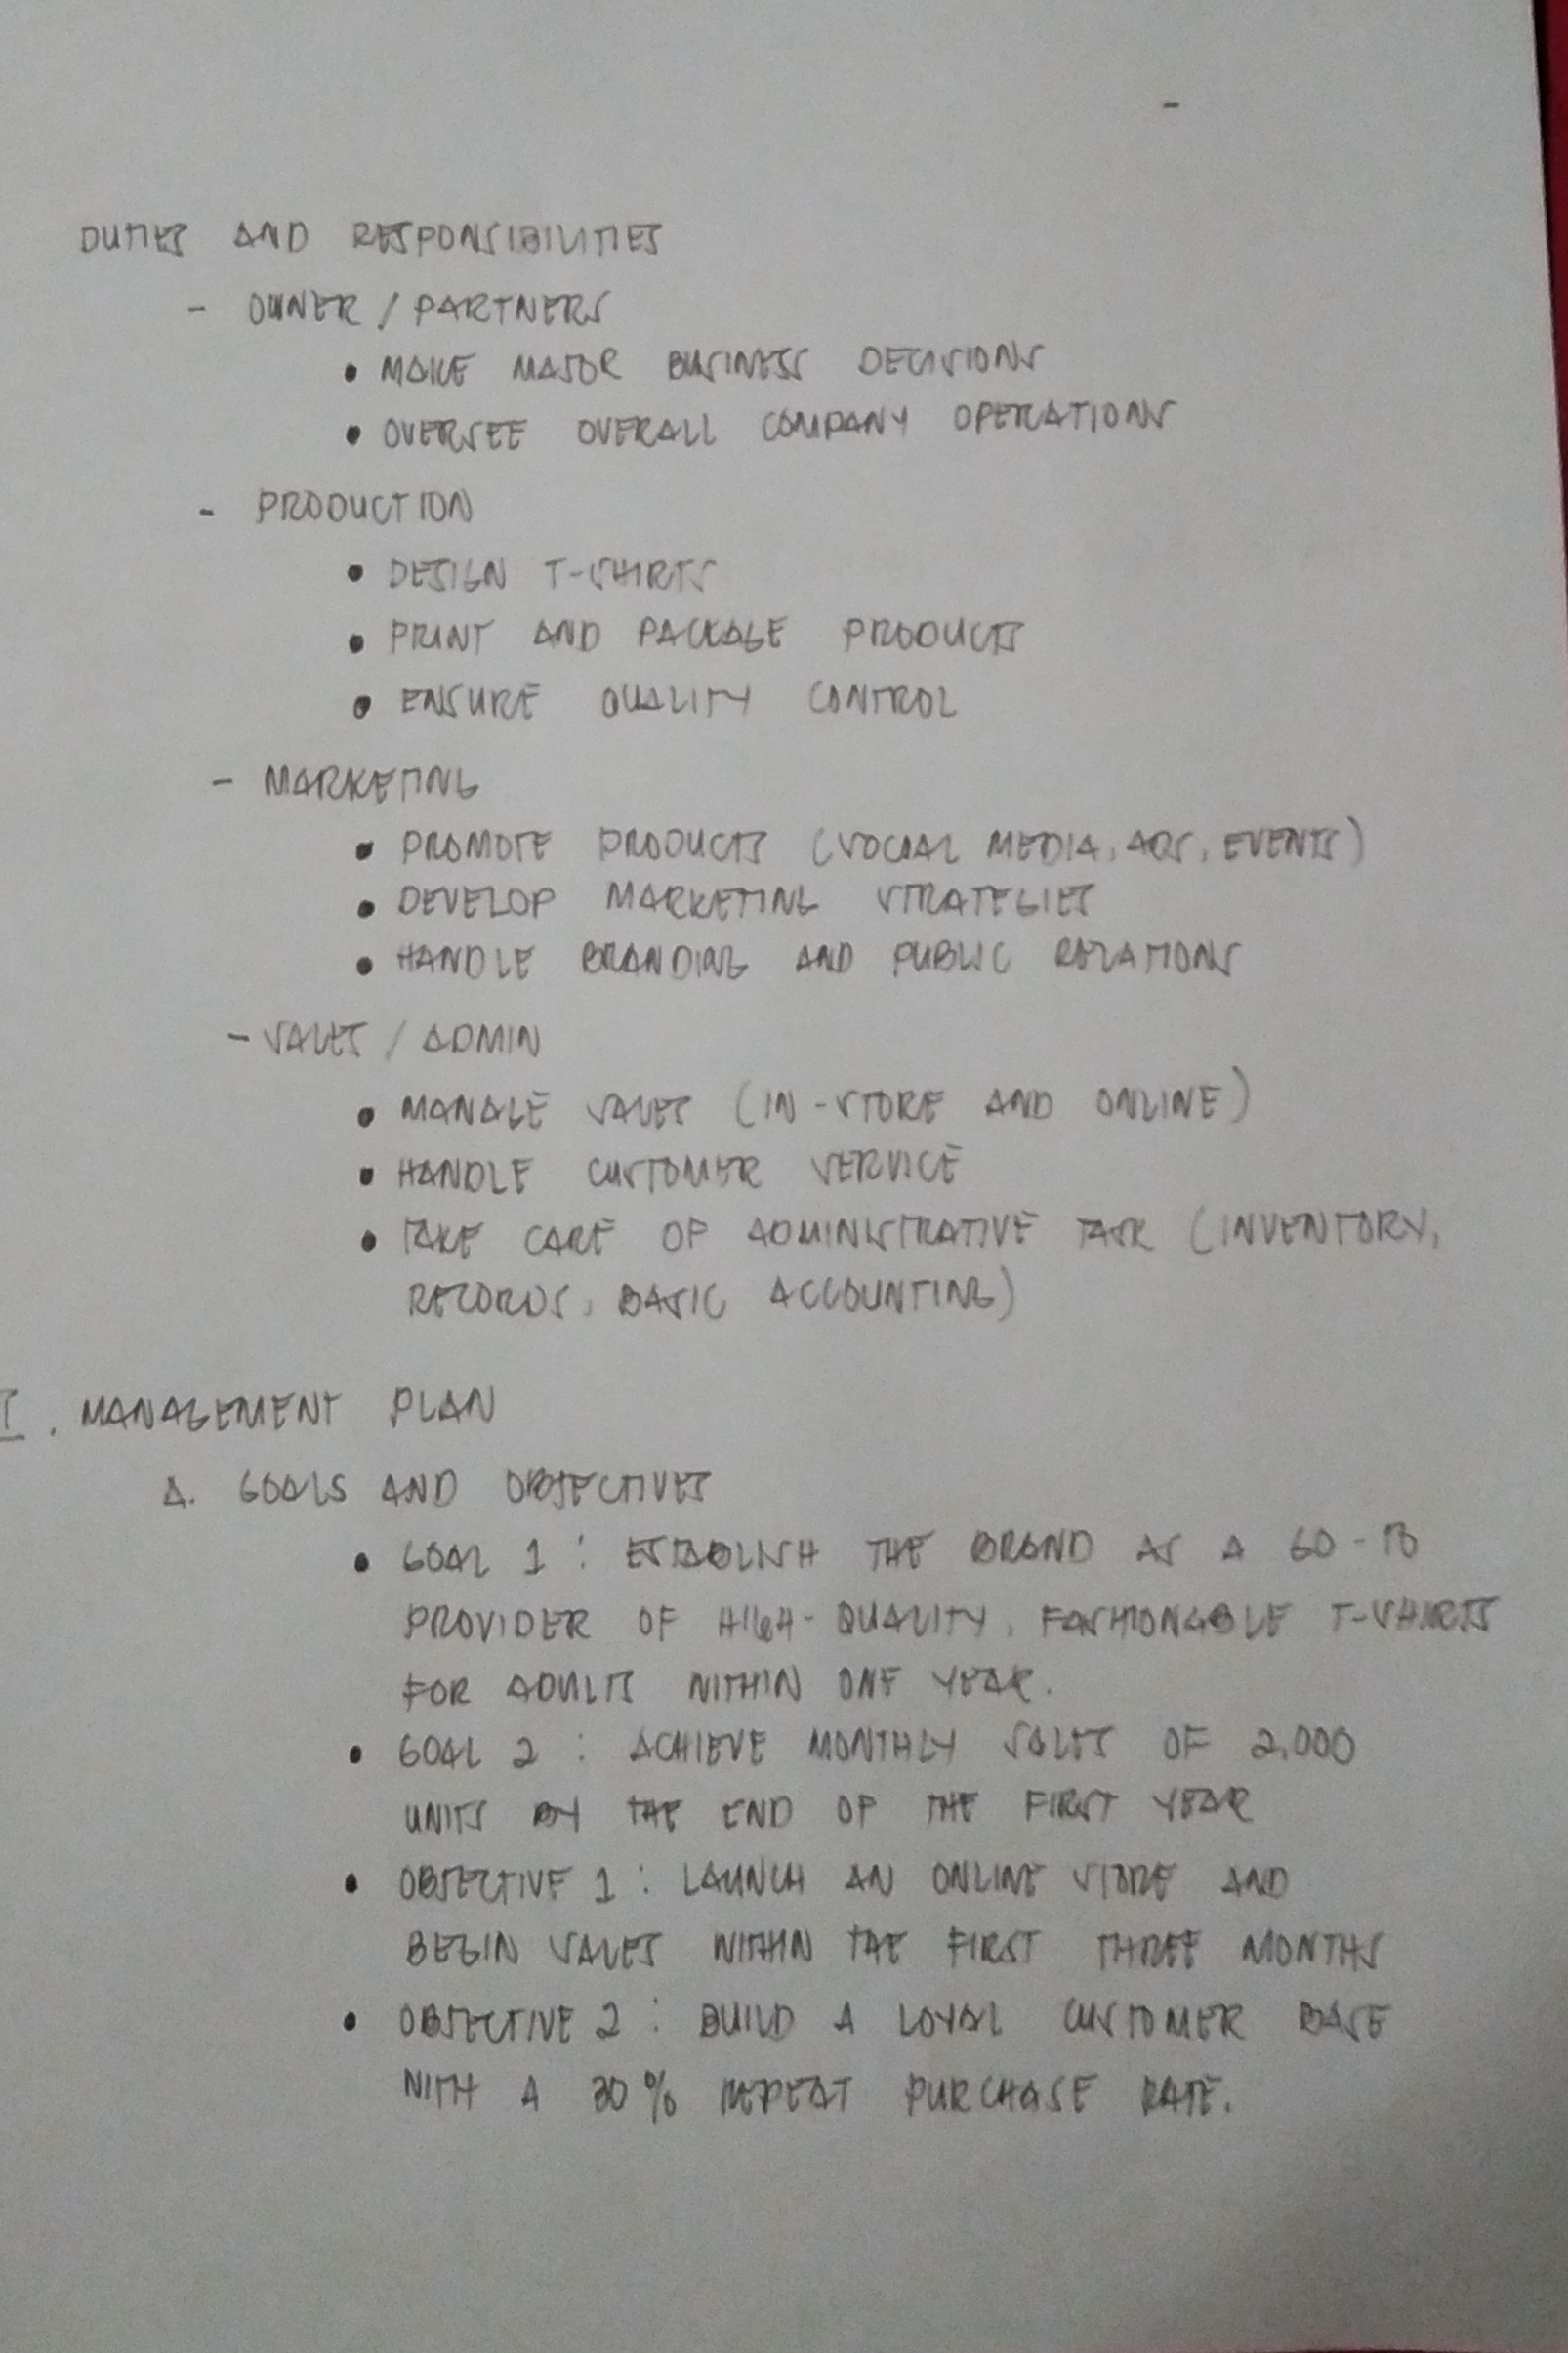 DUTIES AND RESPONSIBILITIES
- OWNER / PARTNERS
• MAKE MAJOR BUSINESS DECISIONS
• OVERSEE OVERALL COMPANY OPERATIONS
- PRODUCTION
• DESIGN T-SHIRTS
• PRINT AND PACKAGE PRODUCTS
• ENSURE QUALITY CONTROL
- MARKETING
• PROMOTE PRODUCTS (SOCIAL MEDIA, ADS, EVENTS)
• DEVELOP MARKETING STRATEGIES
• HANDLE BRANDING AND PUBLIC RELATIONS
- SALES / ADMIN
• MANAGE SALES (IN-STORE AND ONLINE)
• HANDLE CUSTOMER SERVICE
• TAKE CARE OF ADMINISTRATIVE TASK (INVENTORY,
RECORDS, BASIC ACCOUNTING)
I. MANAGEMENT PLAN
A. GOALS AND OBJECTIVES
• GOAL 1 : ESTABLISH THE BRAND AS A GO-TO
PROVIDER OF HIGH-QUALITY, FASHIONABLE T-SHIRTS
FOR ADULTS WITHIN ONE YEAR.
• GOAL 2 : ACHIEVE MONTHLY SALES OF 2,000
UNITS BY THE END OF THE FIRST YEAR
• OBJECTIVE 1 : LAUNCH AN ONLINE STORE AND
BEGIN SALES WITHIN THE FIRST THREE MONTHS
• OBJECTIVE 2 : BUILD A LOYAL CUSTOMER BASE
WITH A 30% REPEAT PURCHASE RATE.